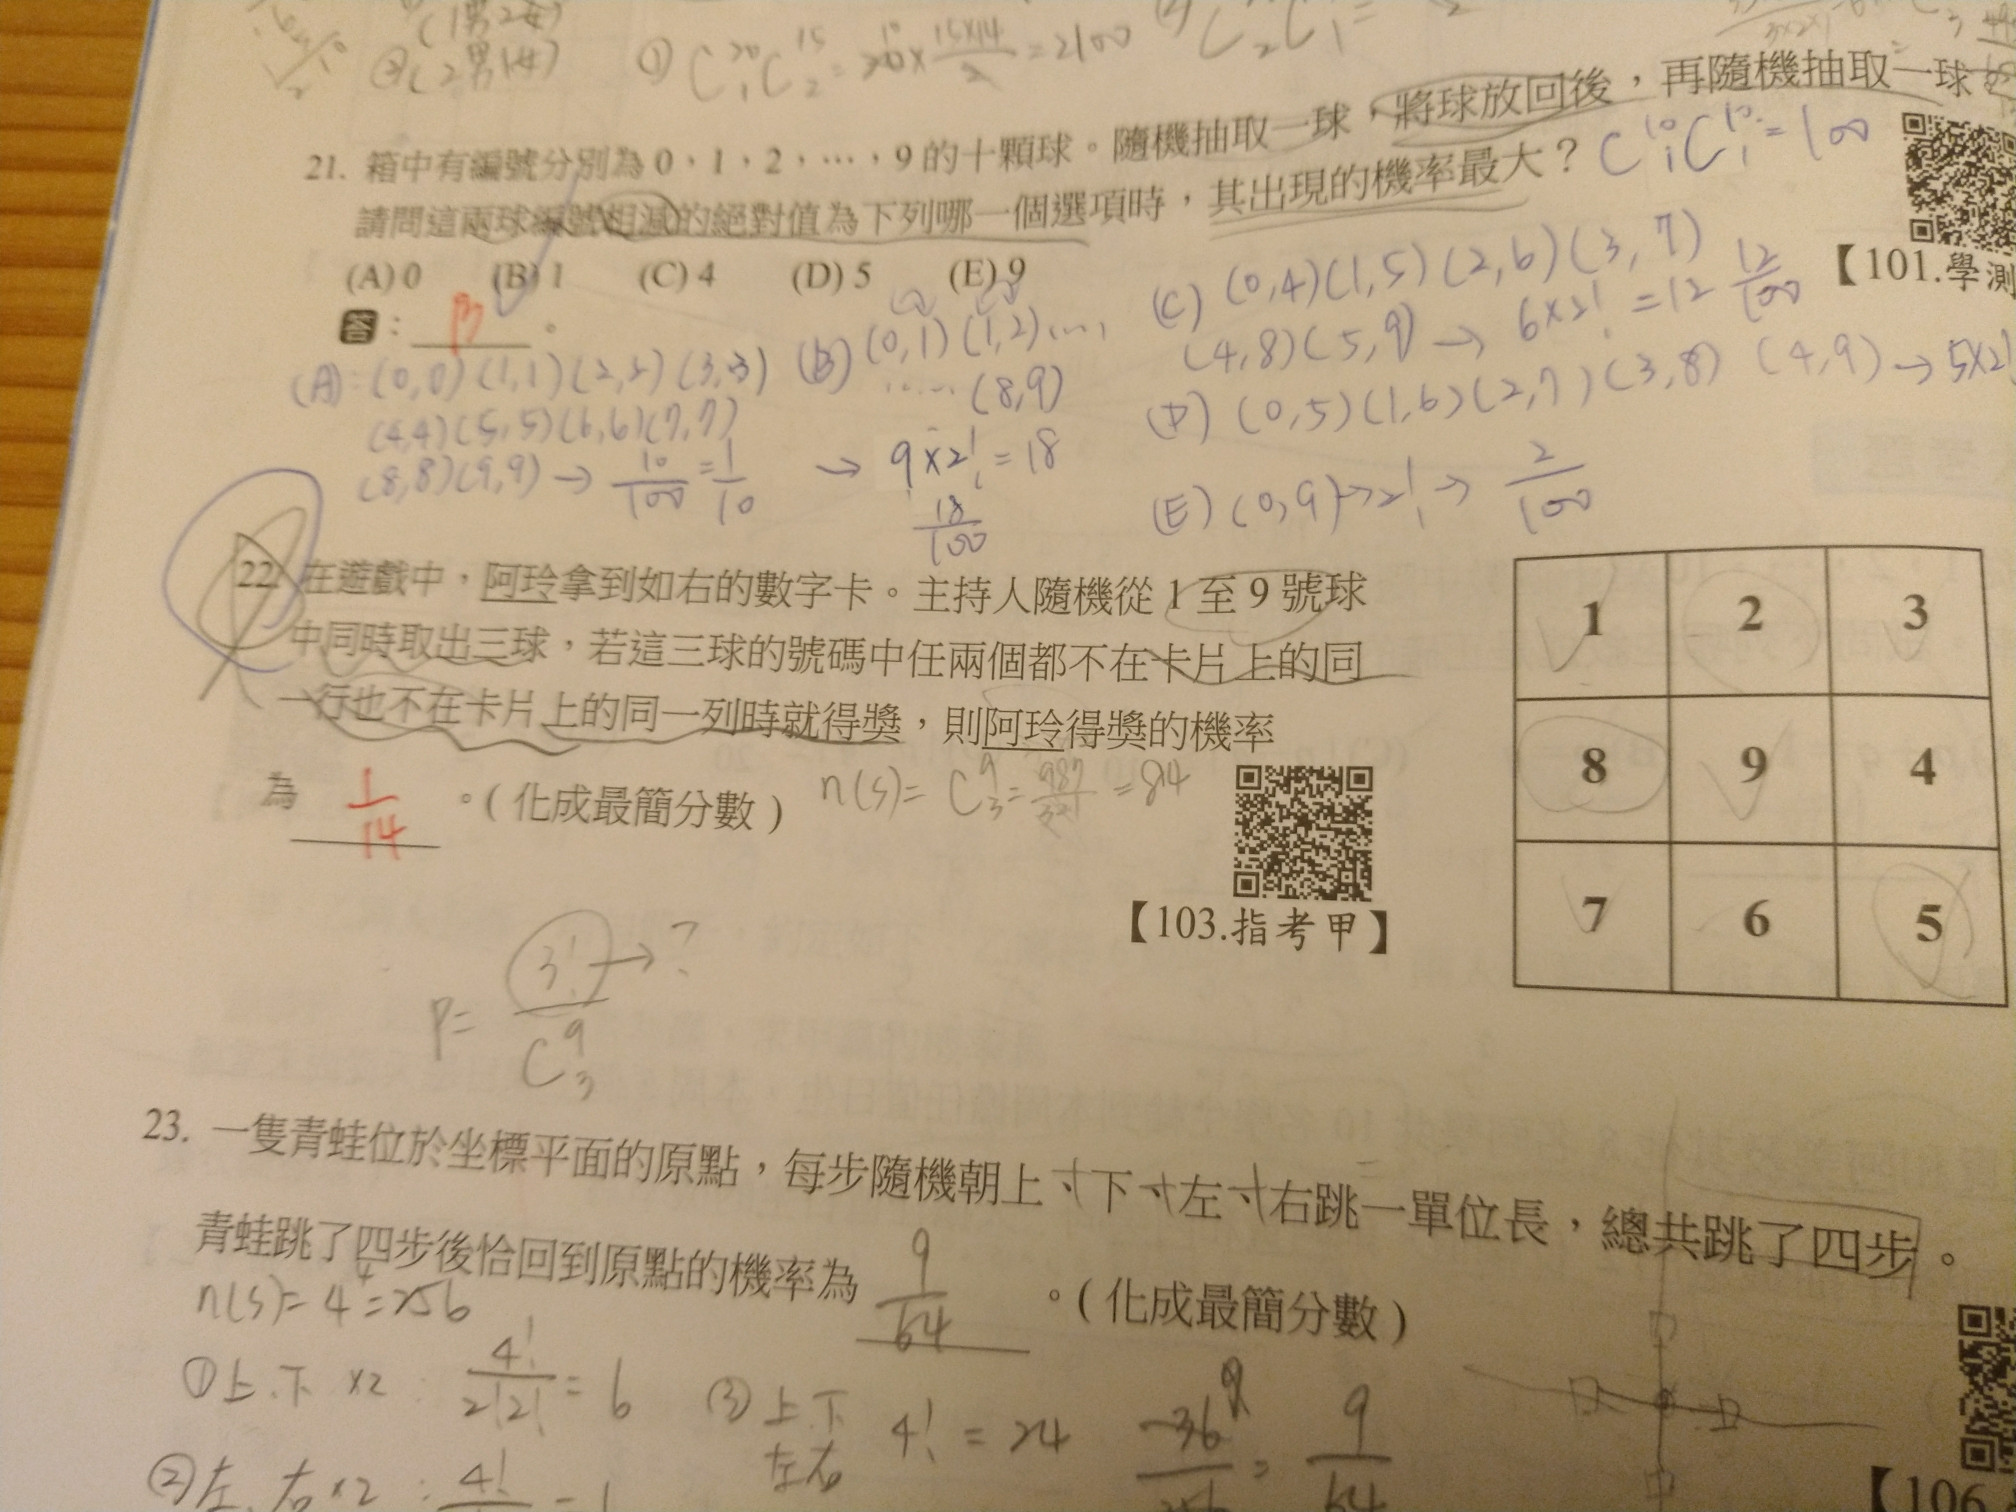 (1男2女)
②(2男1女)
① C²⁰₁C¹⁵₂ = 20 × 15×14/2 = 2100
21. 箱中有編號分別為 0，1，2，…，9 的十顆球。隨機抽取一球，將球放回後，再隨機抽取一球
請問這兩球編號相減的絕對值為下列哪一個選項時，其出現的機率最大？ C¹⁰₁C¹⁰₁ = 100
【101.學測
(A) 0 (B) 1 (C) 4 (D) 5 (E) 9
答：B。
(A): (0,0)(1,1)(2,2)(3,3)
(4,4)(5,5)(6,6)(7,7)
(8,8)(9,9) → 10/100 = 1/10
(B) (0,1)(1,2)....
..... (8,9)
→ 9×2! = 18
18/100
(C) (0,4)(1,5)(2,6)(3,7)
(4,8)(5,9) → 6×2! = 12 12/100
(D) (0,5)(1,6)(2,7)(3,8)(4,9) → 5×2!
(E) (0,9) → 2! → 2/100
22. 在遊戲中，阿玲拿到如右的數字卡。主持人隨機從 1 至 9 號球
中同時取出三球，若這三球的號碼中任兩個都不在卡片上的同
一行也不在卡片上的同一列時就得獎，則阿玲得獎的機率
為 1/14 。( 化成最簡分數 )
n(s) = C⁹₃ = 987/321 = 84
【103.指考甲】
1 2 3
8 9 4
7 6 5
P = 3!/C⁹₃ → ?
23. 一隻青蛙位於坐標平面的原點，每步隨機朝上、下、左、右跳一單位長，總共跳了四步。
青蛙跳了四步後恰回到原點的機率為 9/64 。( 化成最簡分數 )
n(s) = 4⁴ = 256
①上.下 ×2 : 4!/2!2! = 6
②左.右×2 : 4!
③上.下
左右 4! = 24
36 = 9/64
【106